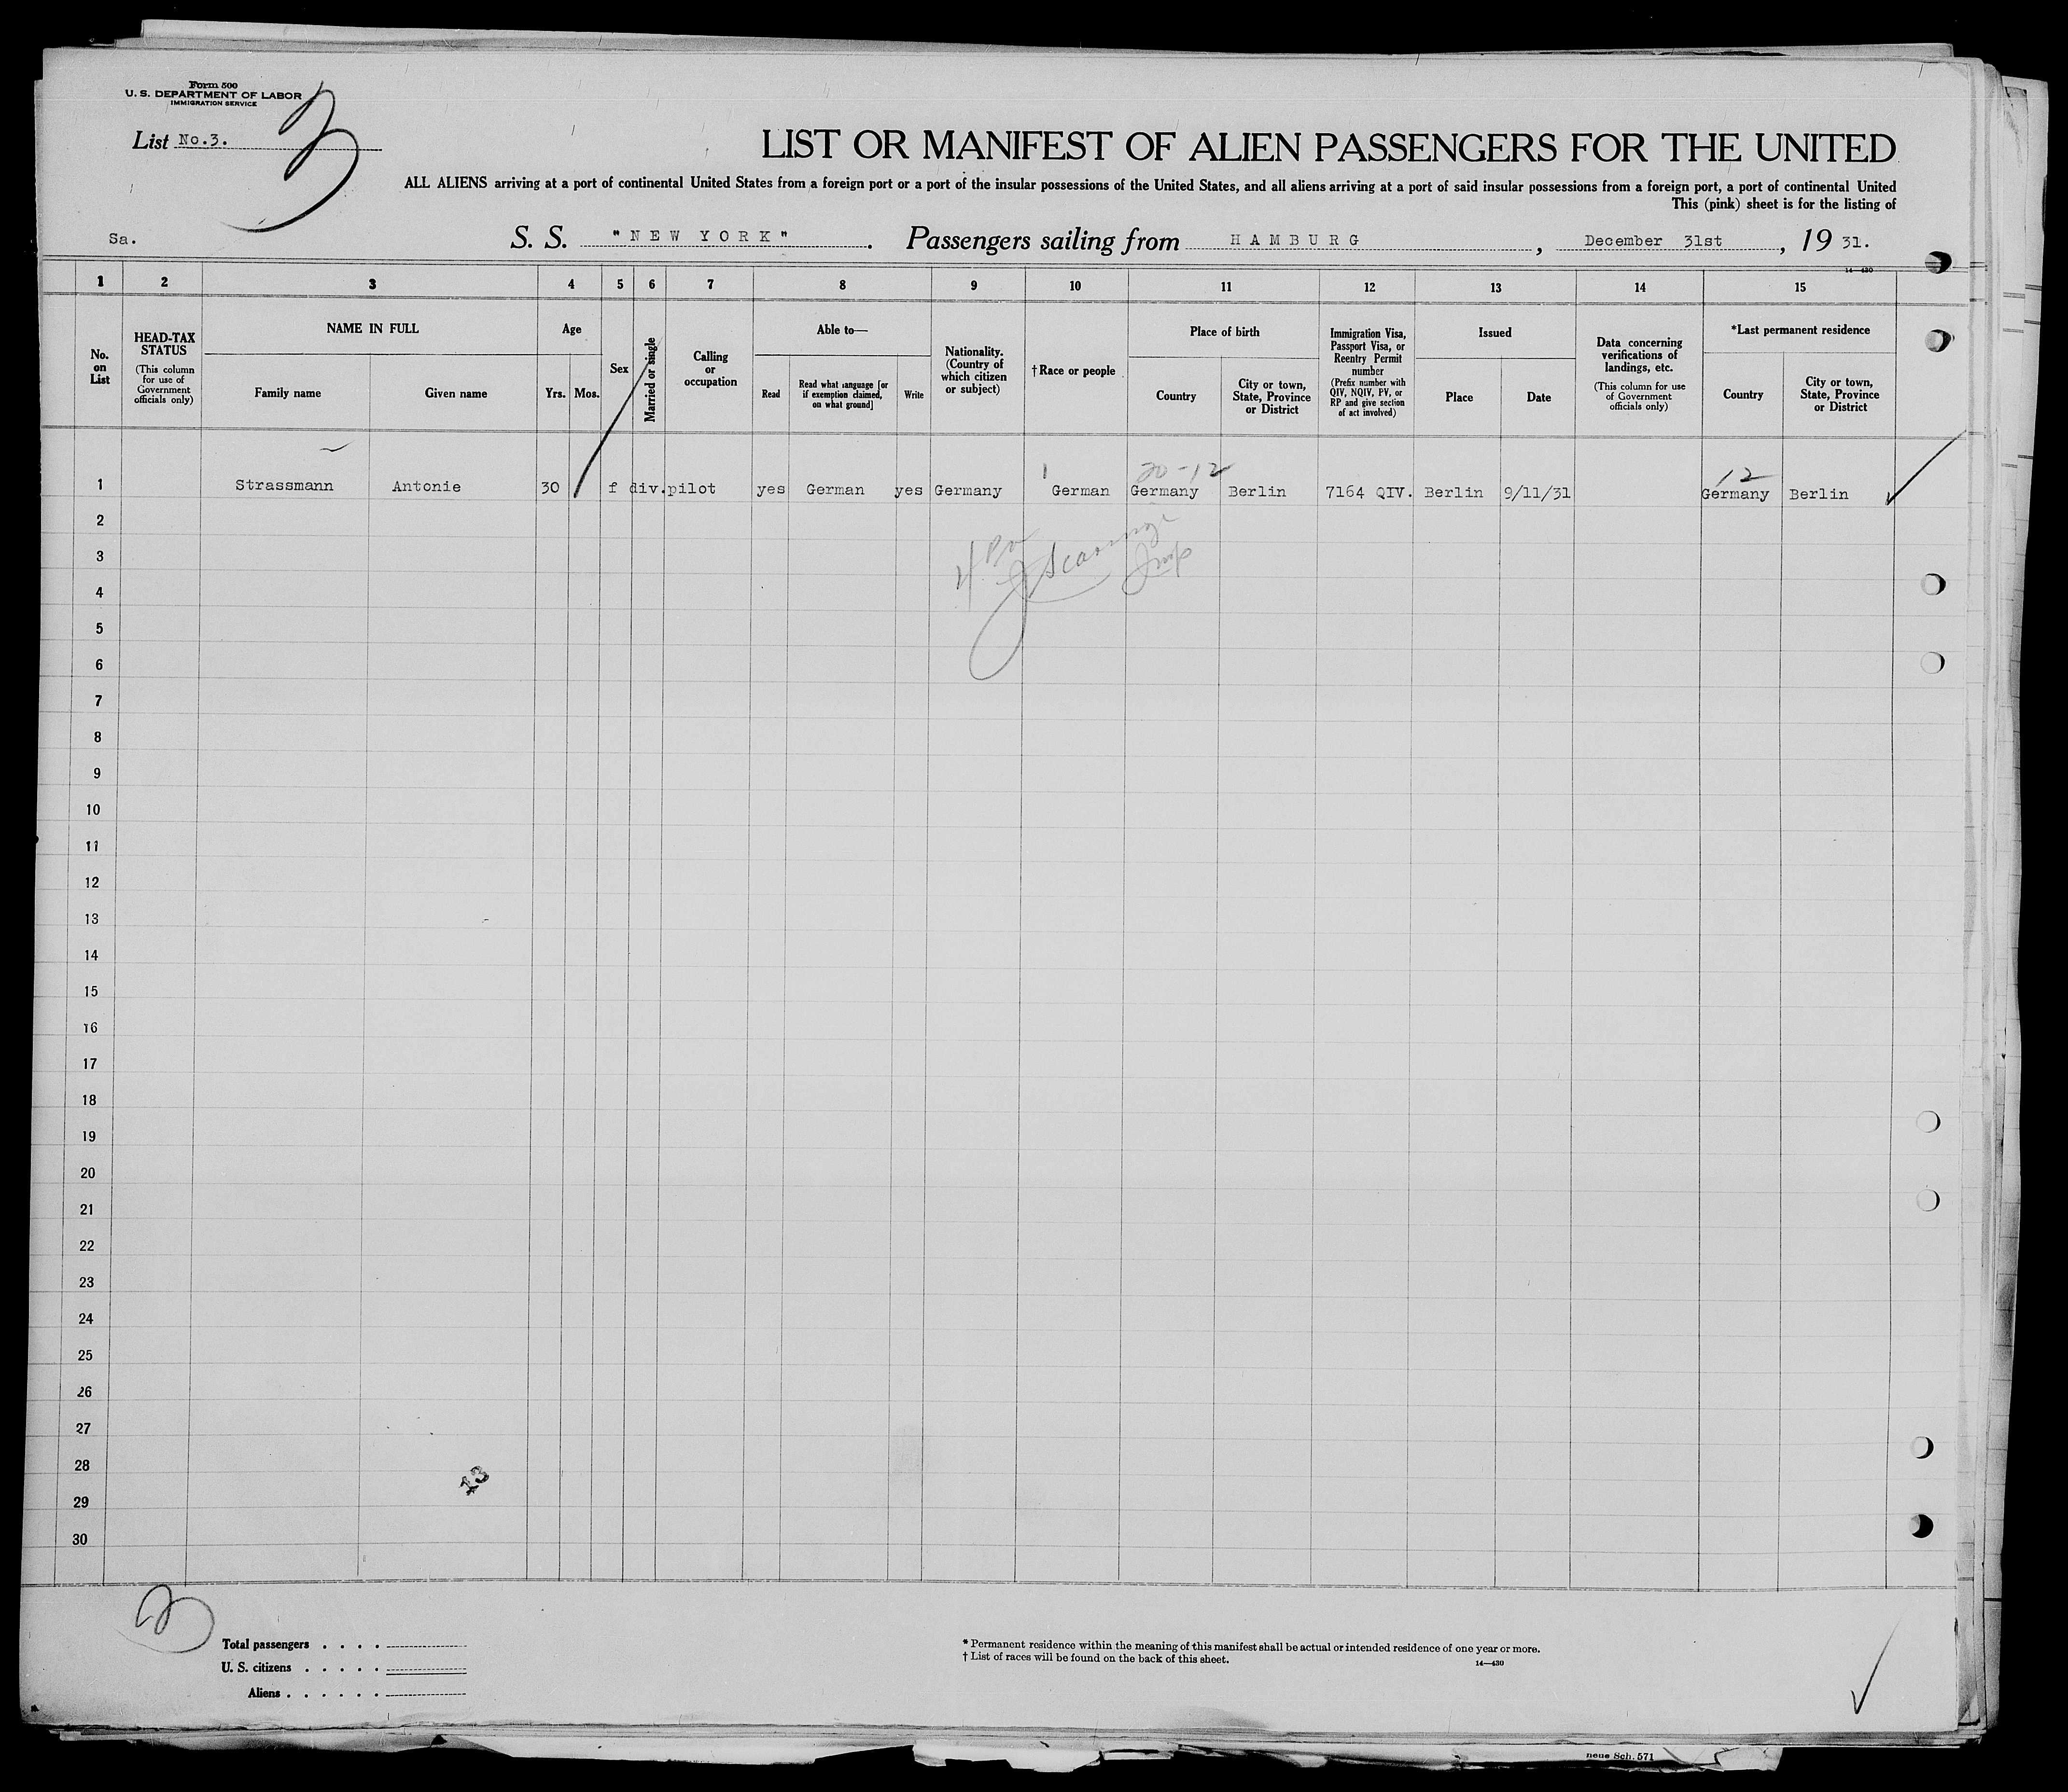 Form 500
U. S. DEPARTMENT OF LABOR
IMMIGRATION SERVICE
List No.3.
3
LIST OR MANIFEST OF ALIEN PASSENGERS FOR THE UNITED
ALL ALIENS arriving at a port of continental United States from a foreign port or a port of the insular possessions of the United States, and all aliens arriving at a port of said insular possessions from a foreign port, a port of continental United
This (pink) sheet is for the listing of
Sa.
S. S. "NEW YORK". Passengers sailing from HAMBURG, December 31st, 19 31.
14—430
1 2 3 4 5 6 7 8 9 10 11 12 13 14 15
No. on List
HEAD-TAX STATUS
(This column for use of Government officials only)
NAME IN FULL
Family name
Given name
Age
Yrs. Mos.
Sex
Married or single
Calling or occupation
Able to—
Read
Read what language [or if exemption claimed, on what ground]
Write
Nationality. (Country of which citizen or subject)
†Race or people
Place of birth
Country
City or town, State, Province or District
Immigration Visa, Passport Visa, or Reentry Permit number
(Prefix number with QIV, NQIV, PV, or RP and give section of act involved)
Issued
Place
Date
Data concerning verifications of landings, etc.
(This column for use of Government officials only)
*Last permanent residence
Country
City or town, State, Province or District
20-12 12
1 Strassmann Antonie 30 f div. pilot yes German yes Germany German Germany Berlin 7164 QIV. Berlin 9/11/31 Germany Berlin
2
3
4
5
6
7
8
9
10
11
12
13
14
15
16
17
18
19
20
21
22
23
24
25
26
27
28
29
30
13
Total passengers . . . .
U. S. citizens . . . . .
Aliens . . . . . .
* Permanent residence within the meaning of this manifest shall be actual or intended residence of one year or more.
† List of races will be found on the back of this sheet.
14—430
neue Sch. 571